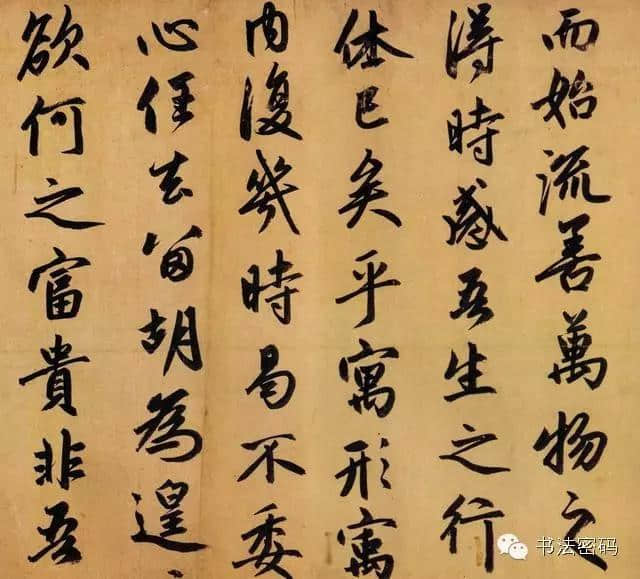 而始流善萬物之
得時感吾生之行
休已矣乎寓形寓
内復幾時曷不委
心任去留胡為遑、
欲何之富貴非吾
书法密码